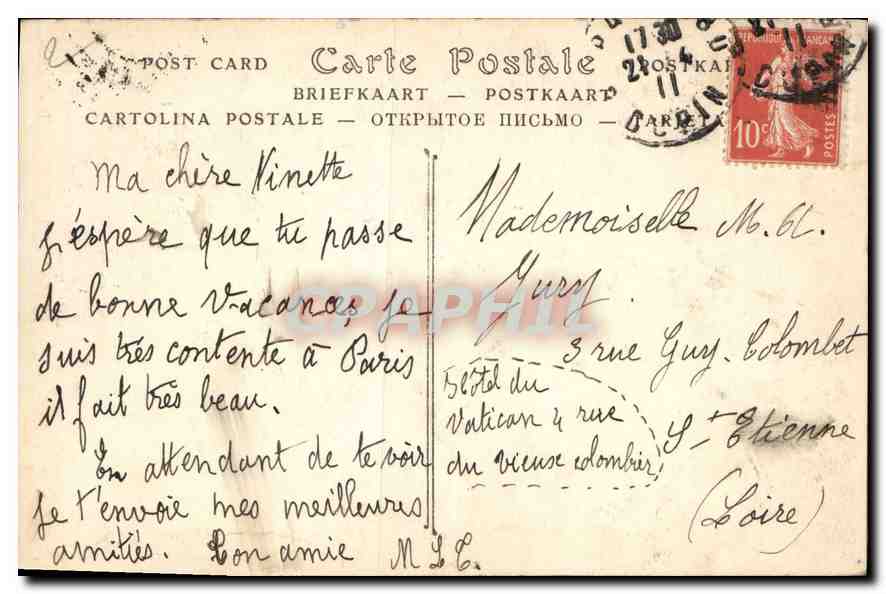 POST CARD Carte Postale POSTKAR
BRIEFKAART — POSTKAART
CARTOLINA POSTALE — ОТКРЫТОЕ ПИСЬМО —
17 30
21 4
11
REPUBLIQUE FRANÇAISE
10c
POSTES
Ma chère Ninette
j'éspère que tu passe
de bonne vacances, je
suis très contente à Paris
il fait très beau.
En attendant de te voir
je t'envoie mes meilleures
amitiés. Ton amie M L T.
Mademoiselle M.
Jury.
3 rue Guy-Colombet
St Etienne
(Loire)
Hôtel du
Vatican 4 rue
du vieuse colombier
CPAPHIL